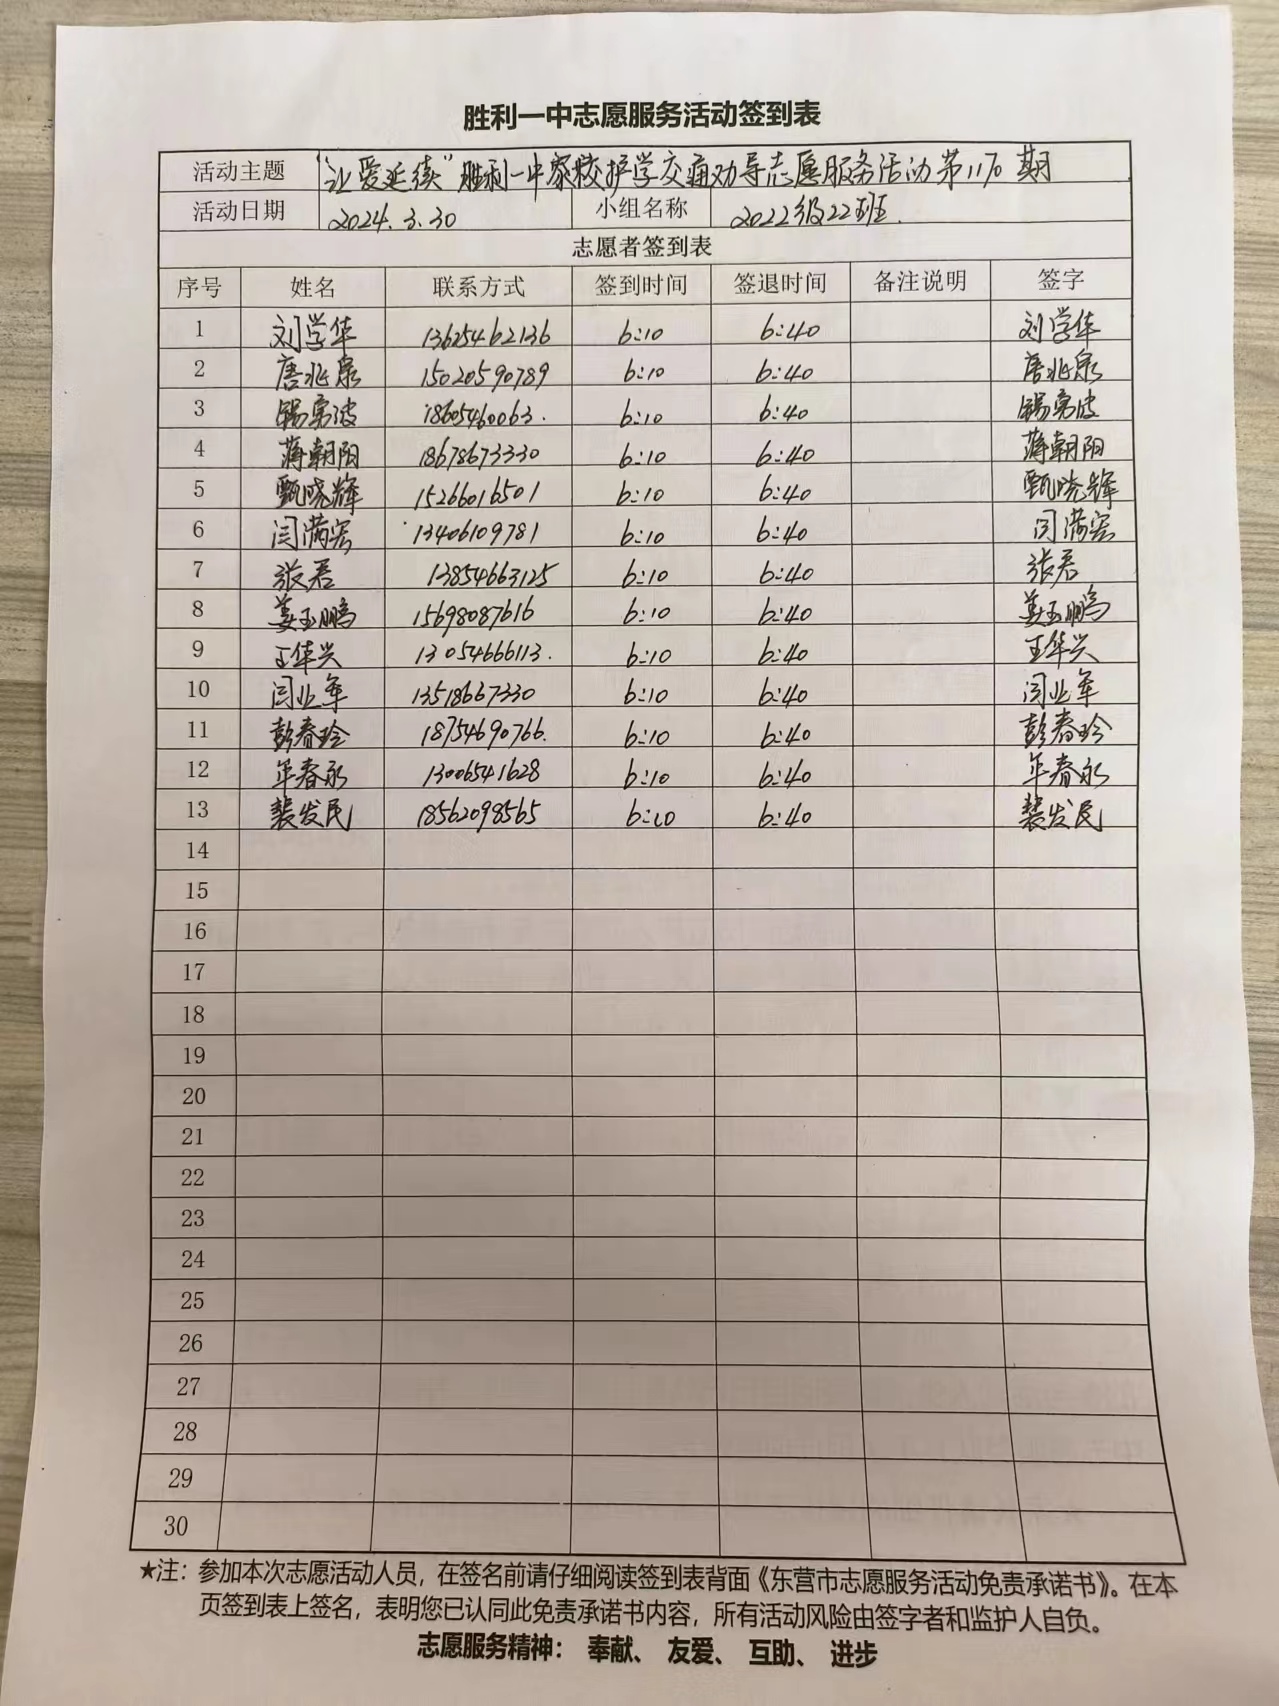 胜利一中志愿服务活动签到表
活动主题 "让爱延续"胜利一中家校护学交通劝导志愿服务活动第1170期
活动日期 2024.3.30 小组名称 2022级22班.
志愿者签到表
序号 姓名 联系方式 签到时间 签退时间 备注说明 签字
1 刘学华 13625462136 6:10 6:40 刘学华
2 唐兆泉 15020590789 6:10 6:40 唐兆泉
3 勇波 18605460063. 6:10 6:40 勇波
4 蒋朝阳 18678673330 6:10 6:40 蒋朝阳
5 甄晓辉 15266016501 6:10 6:40 甄晓辉
6 闫满宏 13406109781 6:10 6:40 闫满宏
7 张君 13854663125 6:10 6:40 张君
8 姜玉鹏 15698087616 6:10 6:40 姜玉鹏
9 王华兴 13054666113. 6:10 6:40 王华兴
10 闫业军 13518667330 6:10 6:40 闫业军
11 彭春玲 18754690766. 6:10 6:40 彭春玲
12 年春永 13006541628 6:10 6:40 年春永
13 裴发民 18562098565 6:10 6:40 裴发民
14
15
16
17
18
19
20
21
22
23
24
25
26
27
28
29
30
★注：参加本次志愿活动人员，在签名前请仔细阅读签到表背面《东营市志愿服务活动免责承诺书》。在本
页签到表上签名，表明您已认同此免责承诺书内容，所有活动风险由签字者和监护人自负。
志愿服务精神： 奉献、 友爱、 互助、 进步